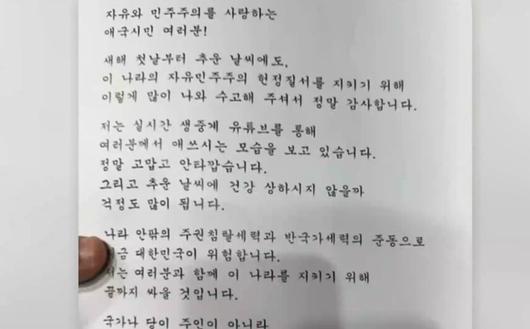 자유와 민주주의를 사랑하는
애국시민 여러분!
새해 첫날부터 추운 날씨에도,
이 나라의 자유민주주의 헌정질서를 지키기 위해
이렇게 많이 나와 수고해 주셔서 정말 감사합니다.
저는 실시간 생중계 유튜브를 통해
여러분께서 애쓰시는 모습을 보고 있습니다.
정말 고맙고 안타깝습니다.
그리고 추운 날씨에 건강 상하시지 않을까
걱정도 많이 됩니다.
나라 안팎의 주권침탈세력과 반국가세력의 준동으로
대한민국이 위험합니다.
여러분과 함께 이 나라를 지키기 위해
끝까지 싸울 것입니다.
국가나 당이 주인이 아니라